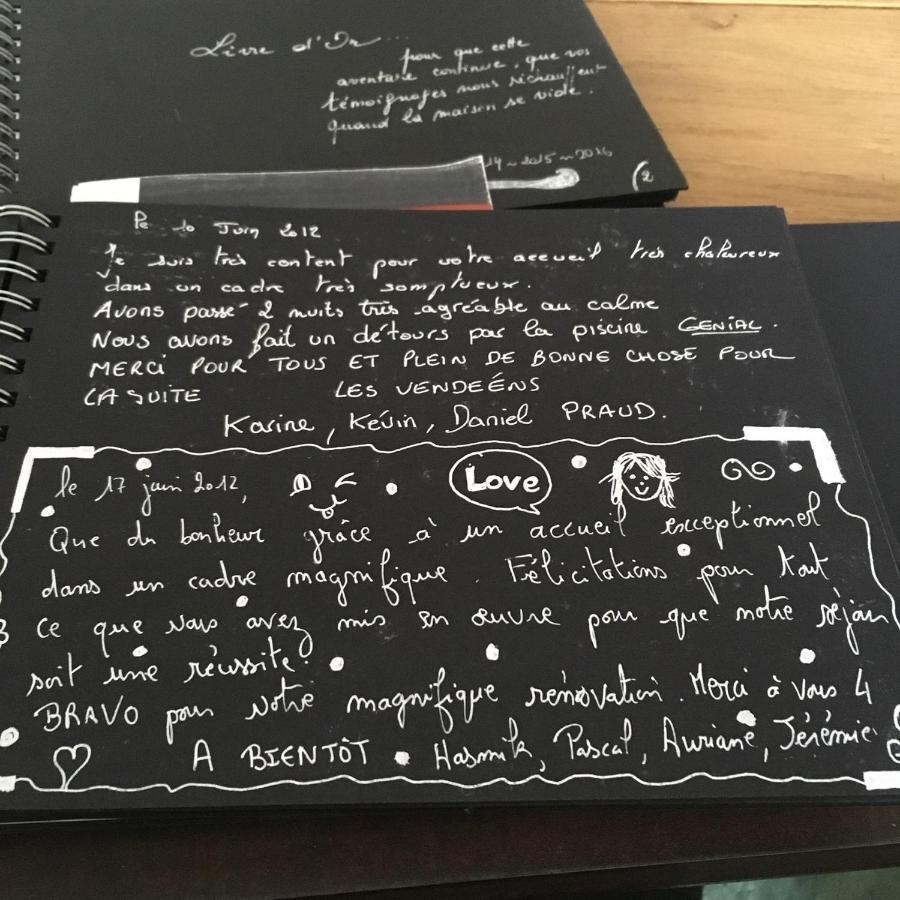 Livre d'Or...
pour que cette
aventure continue, que vos
témoignages nous réchauffent
quand la maison se vide.
14 ~ 2015 ~ 2016
(2
Le 10 Juin 2012
Je suis très content pour votre acceuil très chaleureux
dans un cadre très somptueux.
Avons passé 2 nuits très agréable au calme
Nous avons fait un détours par la piscine GENIAL.
MERCI POUR TOUS ET PLEIN DE BONNE CHOSE POUR
LA SUITE LES VENDEÉNS
Karine, Kévin, Daniel PRAUD.
le 17 juin 2012, Love
Que du bonheur grâce à un accueil exceptionnel
dans un cadre magnifique. Félicitations pour tout
ce que vous avez mis en œuvre pour que notre séjour
soit une réussite!
BRAVO pour votre magnifique rénovation. Merci à vous 4
A BIENTÔT • Hasmik, Pascal, Auriane, Jérémie